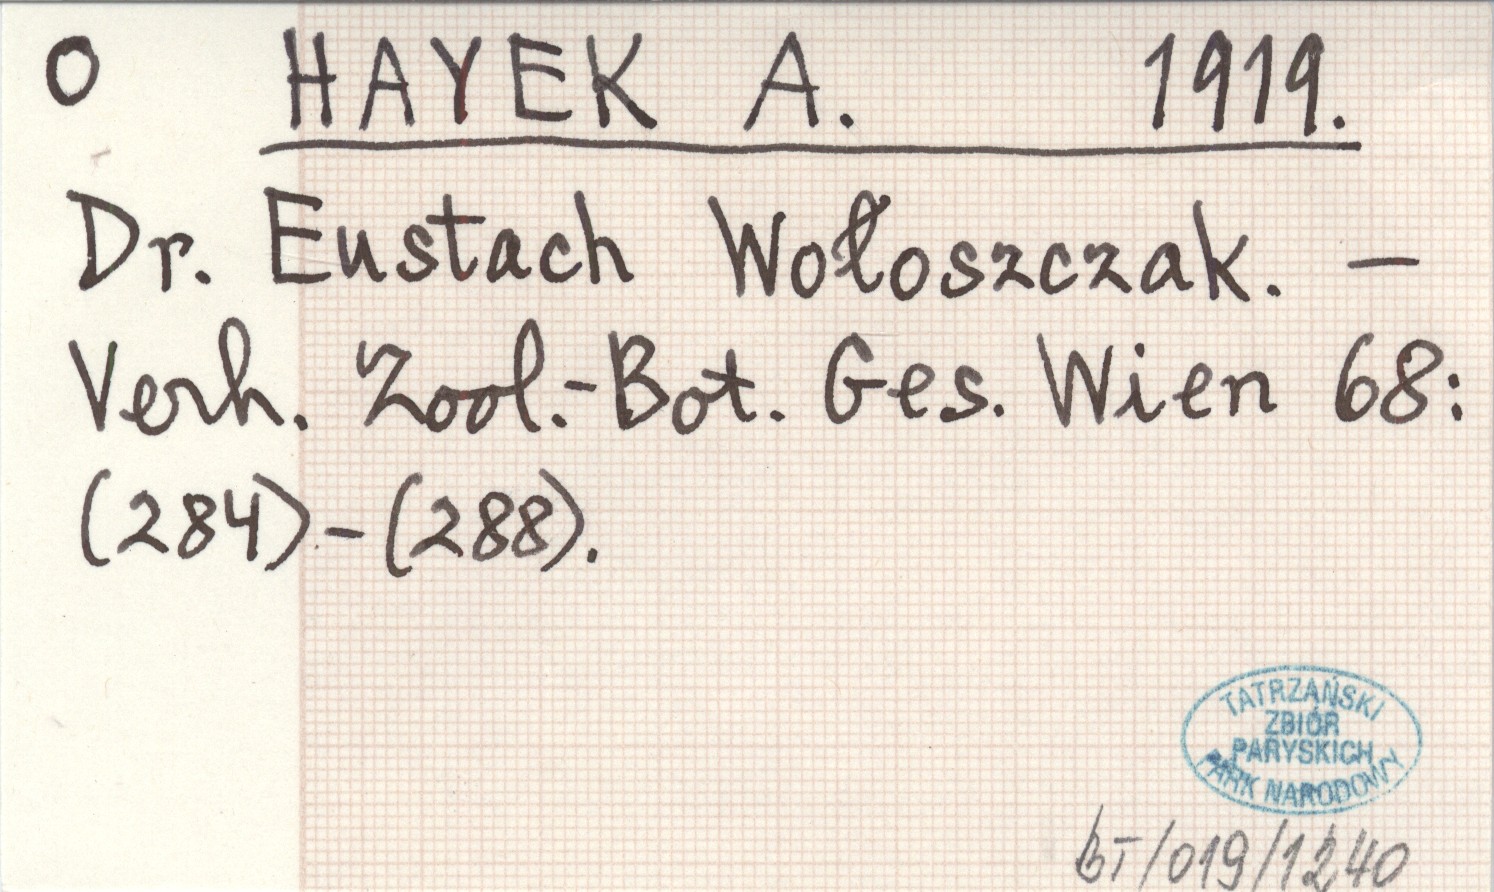 O HAYEK A. 1919.
Dr. Eustach Wołoszczak. –
Verh. Zool.-Bot. Ges. Wien 68:
(284)-(288).
TATRZAŃSKI
ZBIÓR
PARYSKICH
PARK NARODOWY
bT/019/1240